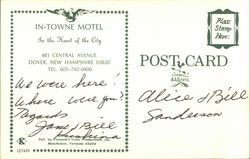 IN-TOWNE MOTEL
In the Heart of the City
481 CENTRAL AVENUE
DOVER, NEW HAMPSHIRE 03820
TEL. 603-742-0400
We were here!
Where were you?
Regards
Jane & Bill
Place
Stamp
Here:
POST CARD
Address
Alice & Bill
Sanderson